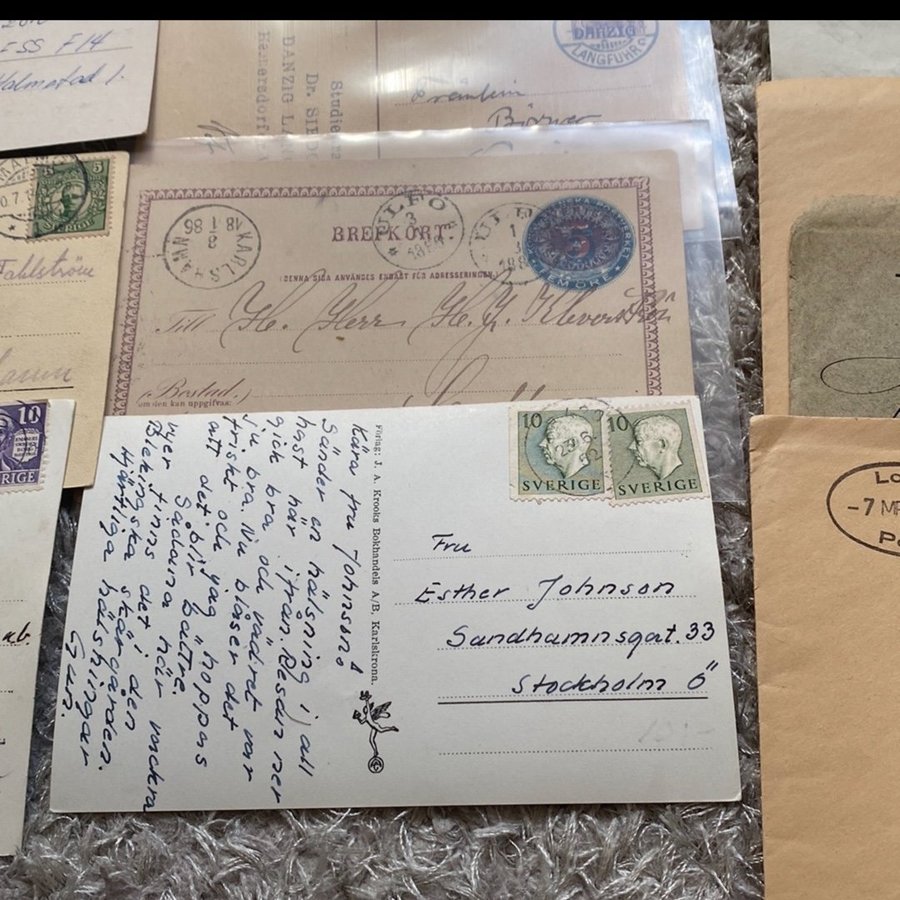 ESS F14
Halmstad 1.
Studienra
Dr. SIE
DANZIG LA
Hamersdorf
DANZIG
LANGFUHR
Fräulein
5
SVERIGE
Fahlström
KARLSHAMN
18 1 86
BREFKORT.
ULFÖ
3
(DENNA SIDA ANVÄNDES ENDAST FÖR ADRESSERINGEN.)
5
FEM ÖRE
Till H. Herr H.
(Bostad.)
om den kan uppgifvas:
10
RIGE
10
SVERIGE
10
SVERIGE
Kära fru Johnson!
Sänder en hälsning i all
hast här ifrån. Resan ner
gick bra och vädret var
ju bra. Nu blåser det
friskt och jag hoppas
att det blir bättre.
Sådana här vackra
vyer finns det i den
Blekingska skärgården.
Hjärtliga hälsningar
Gun.
Förlag: J. A. Krooks Bokhandels A/B. Karlskrona.
©
Fru
Esther Johnson
Sandhamnsgat. 33
Stockholm Ö
-7 M